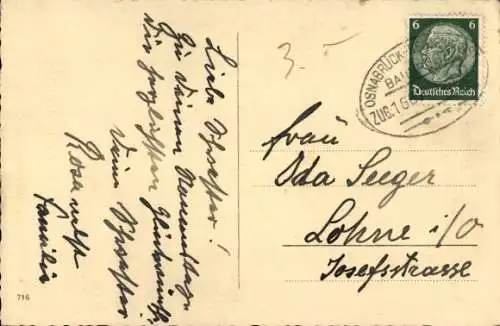 Liebe Schwester!
Zu Deinem Namenstage
die herzlichsten Glückwünsche
Deine Schwester
Rosa nebst
Familie
716
3.-
6
Deutsches Reich
OSNABRÜCK
ZUG
Frau
Oda Seeger
Lohne i/O
Josefsstrasse